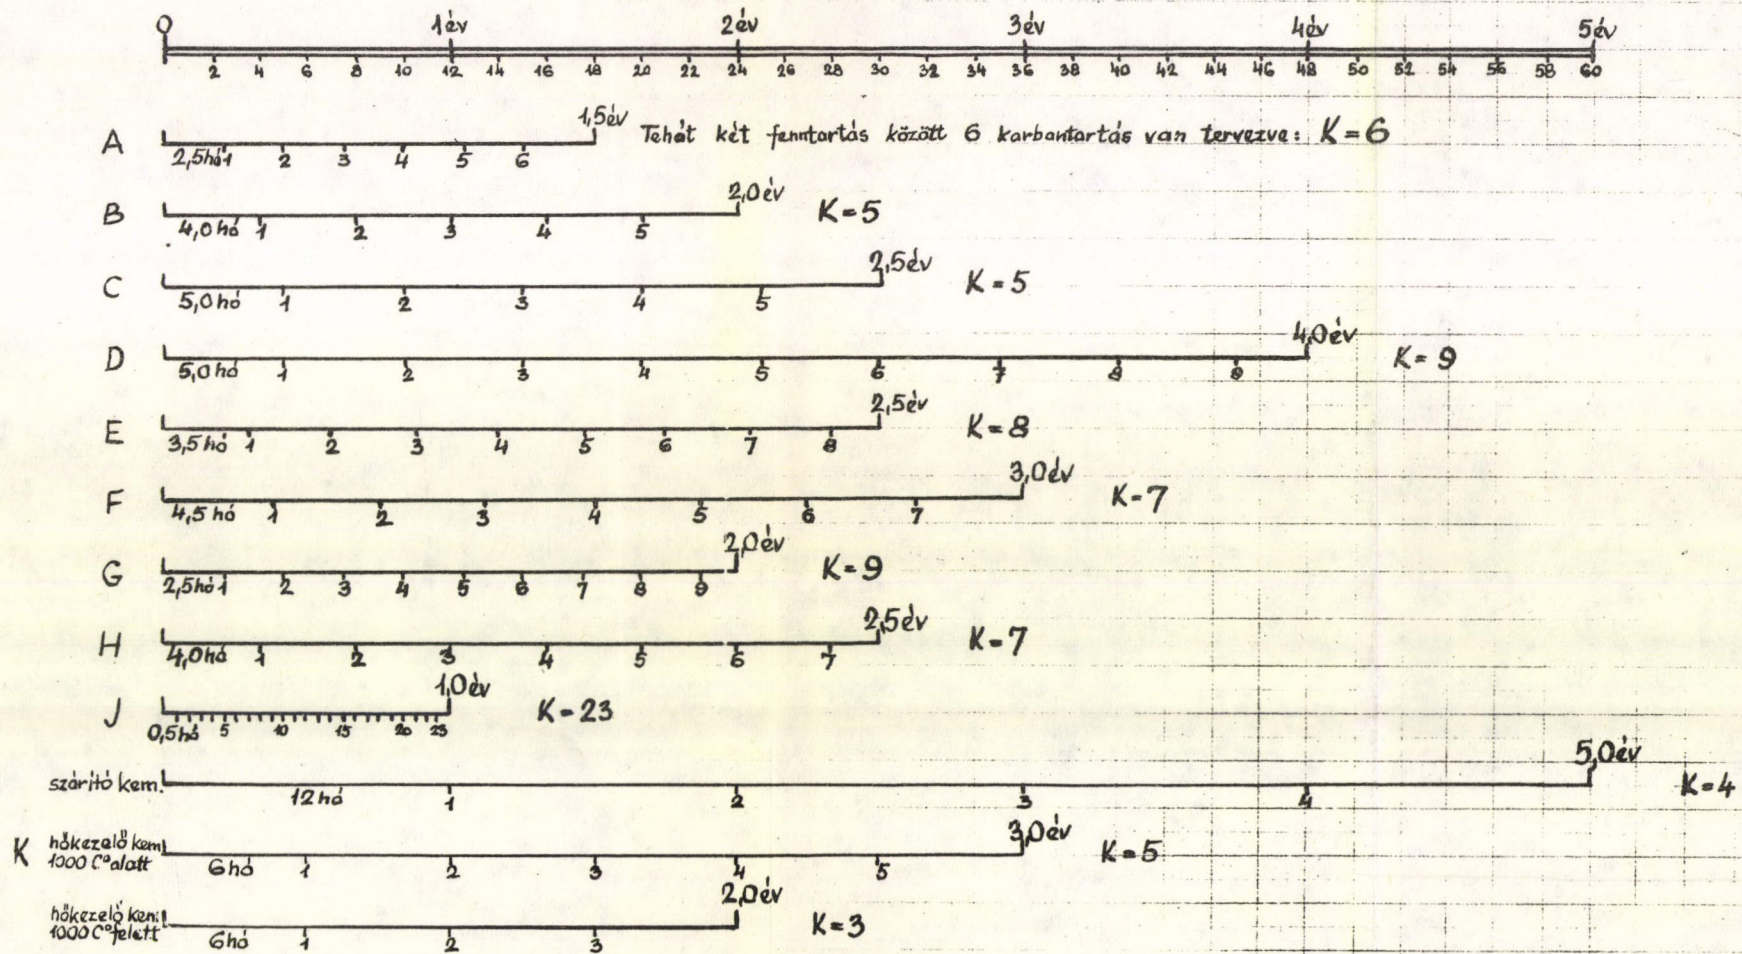 0 1év 2év 3év 4év 5év
2 4 6 8 10 12 14 16 18 20 22 24 26 28 30 32 34 36 38 40 42 44 46 48 50 52 54 56 58 60
1,5év
A Tehát két fenntartás között 6 karbantartás van tervezve: K=6
2,5hó 1 2 3 4 5 6
2,0év
B K=5
4,0hó 1 2 3 4 5
2,5év
C K=5
5,0hó 1 2 3 4 5
4,0év
D K=9
5,0hó 1 2 3 4 5 6 7 8 9
2,5év
E K=8
3,5hó 1 2 3 4 5 6 7 8
3,0év
F K=7
4,5hó 1 2 3 4 5 6 7
2,0év
G K=9
2,5hó 1 2 3 4 5 6 7 8 9
2,5év
H K=7
4,0hó 1 2 3 4 5 6 7
1,0év
J K=23
0,5hó 5 10 15 20 23
5,0év
szárító kem. K=4
12hó 1 2 3 4
3,0év
K hőkezelő kem. K=5
1000 C° alatt 6hó 1 2 3 4 5
2,0év
hőkezelő kem. K=3
1000 C° felett 6hó 1 2 3